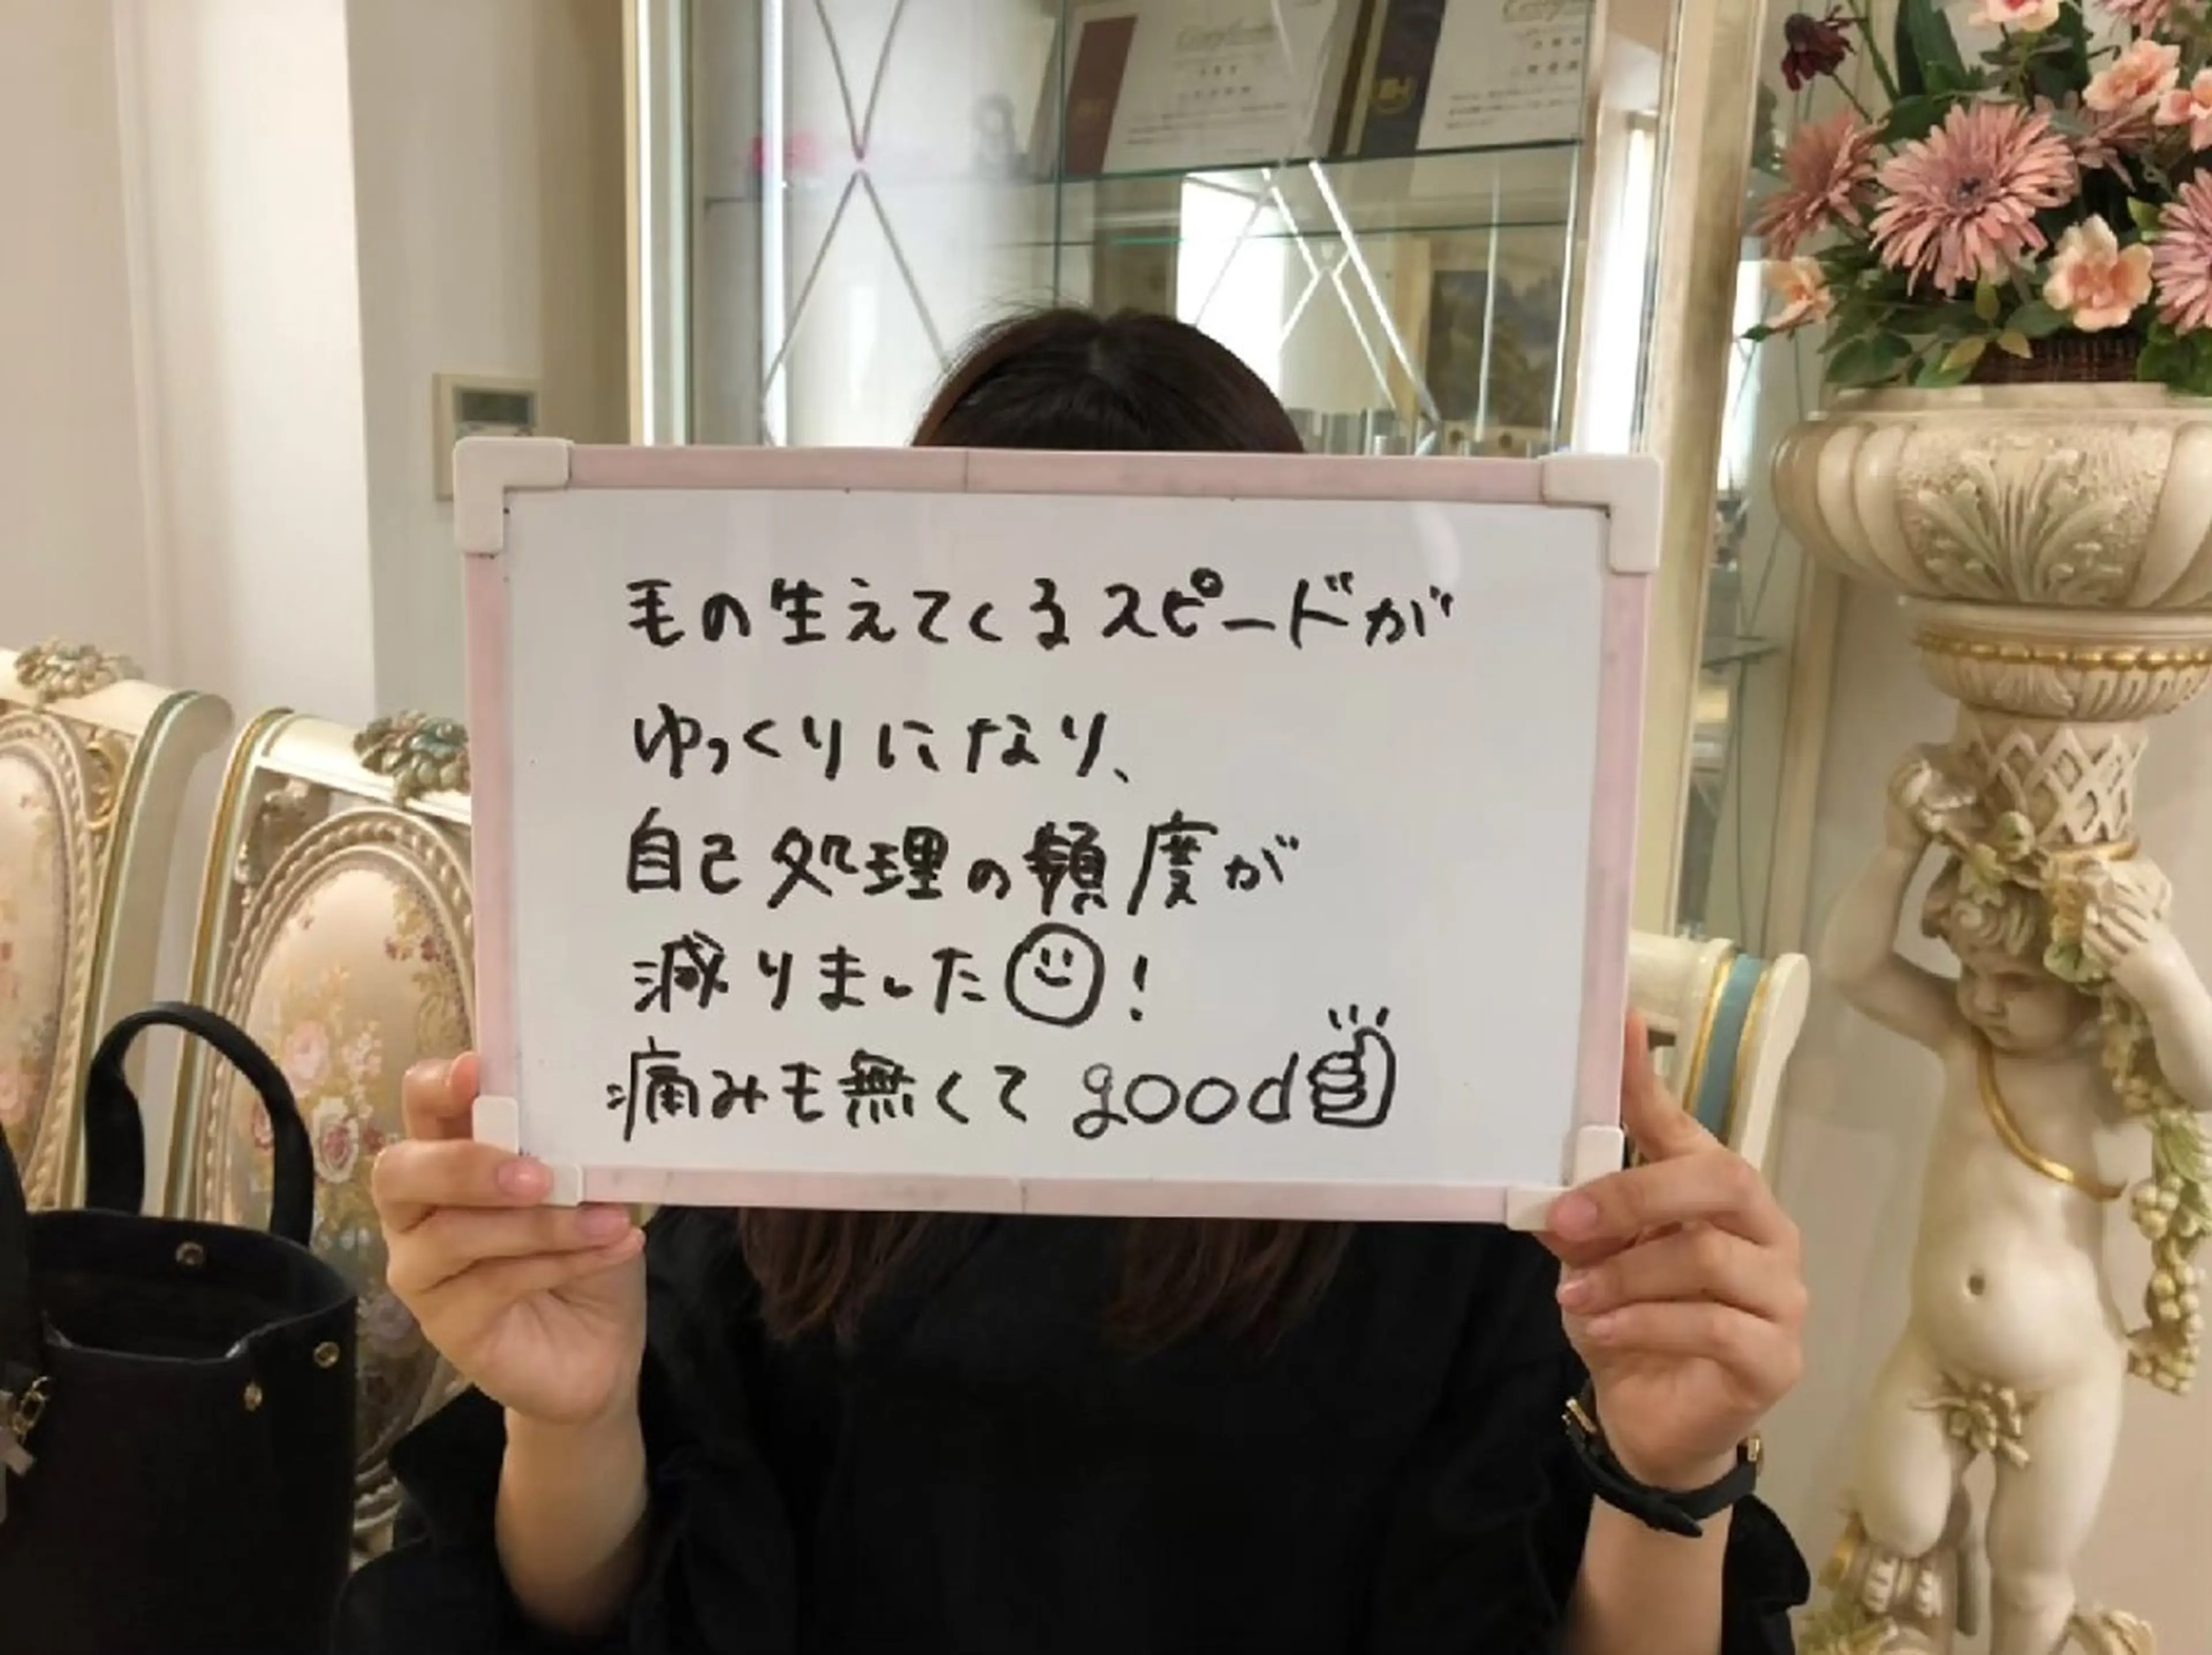 毛の生えてくるスピードが
ゆっくりになり、
自己処理の頻度が
減りました☺!
痛みも無くてgood👍